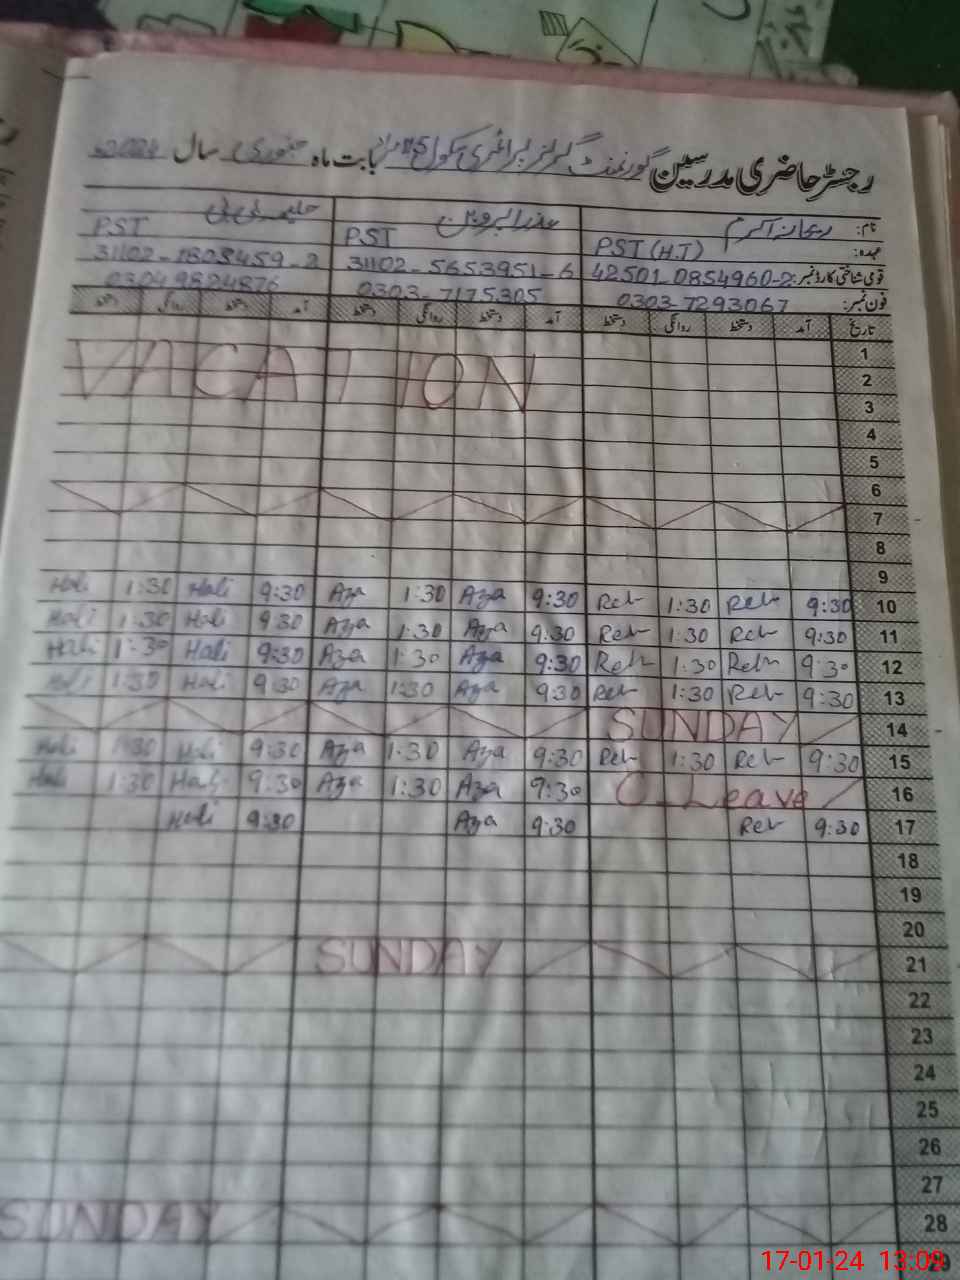 رجسٹر حاضری مدرسین گورنمنٹ گرلز پرائمری سکول بابت ماہ جنوری سال 2024ء
نام: ریحانہ اکرم عذرا پروین حلیمہ بی بی
عہدہ: PST (H.T) PST PST
قومی شناختی کارڈ نمبر: 42501-0854960-2 31102-5653951-6
فون نمبر: 0303-7293067 0303-7175305 03049824876
تاریخ آمد دستخط روانگی دستخط آمد دستخط روانگی دستخط آمد دستخط روانگی دستخط
1
VACATION 2
3
4
5
6
7
8
9
Hali 1:30 Hali 9:30 Aza 1:30 Aza 9:30 Reh 1:30 Reh 9:30 10
Hali 1:30 Hali 9:30 Aza 1:30 Aza 9:30 Reh 1:30 Reh 9:30 11
Hali 1:30 Hali 9:30 Aza 1:30 Aza 9:30 Reh 1:30 Reh 9:30 12
Hali 1:30 Hali 9:30 Aza 1:30 Aza 9:30 Reh 1:30 Reh 9:30 13
SUNDAY 14
Hali 1:30 Hali 9:30 Aza 1:30 Aza 9:30 Reh 1:30 Reh 9:30 15
Hali 1:30 Hali 9:30 Aza 1:30 Aza 9:30 C.Leave 16
Hali 9:30 Aza 9:30 Reh 9:30 17
18
19
20
SUNDAY 21
22
23
24
25
26
27
SUNDAY 28
29
17-01-24 13:09